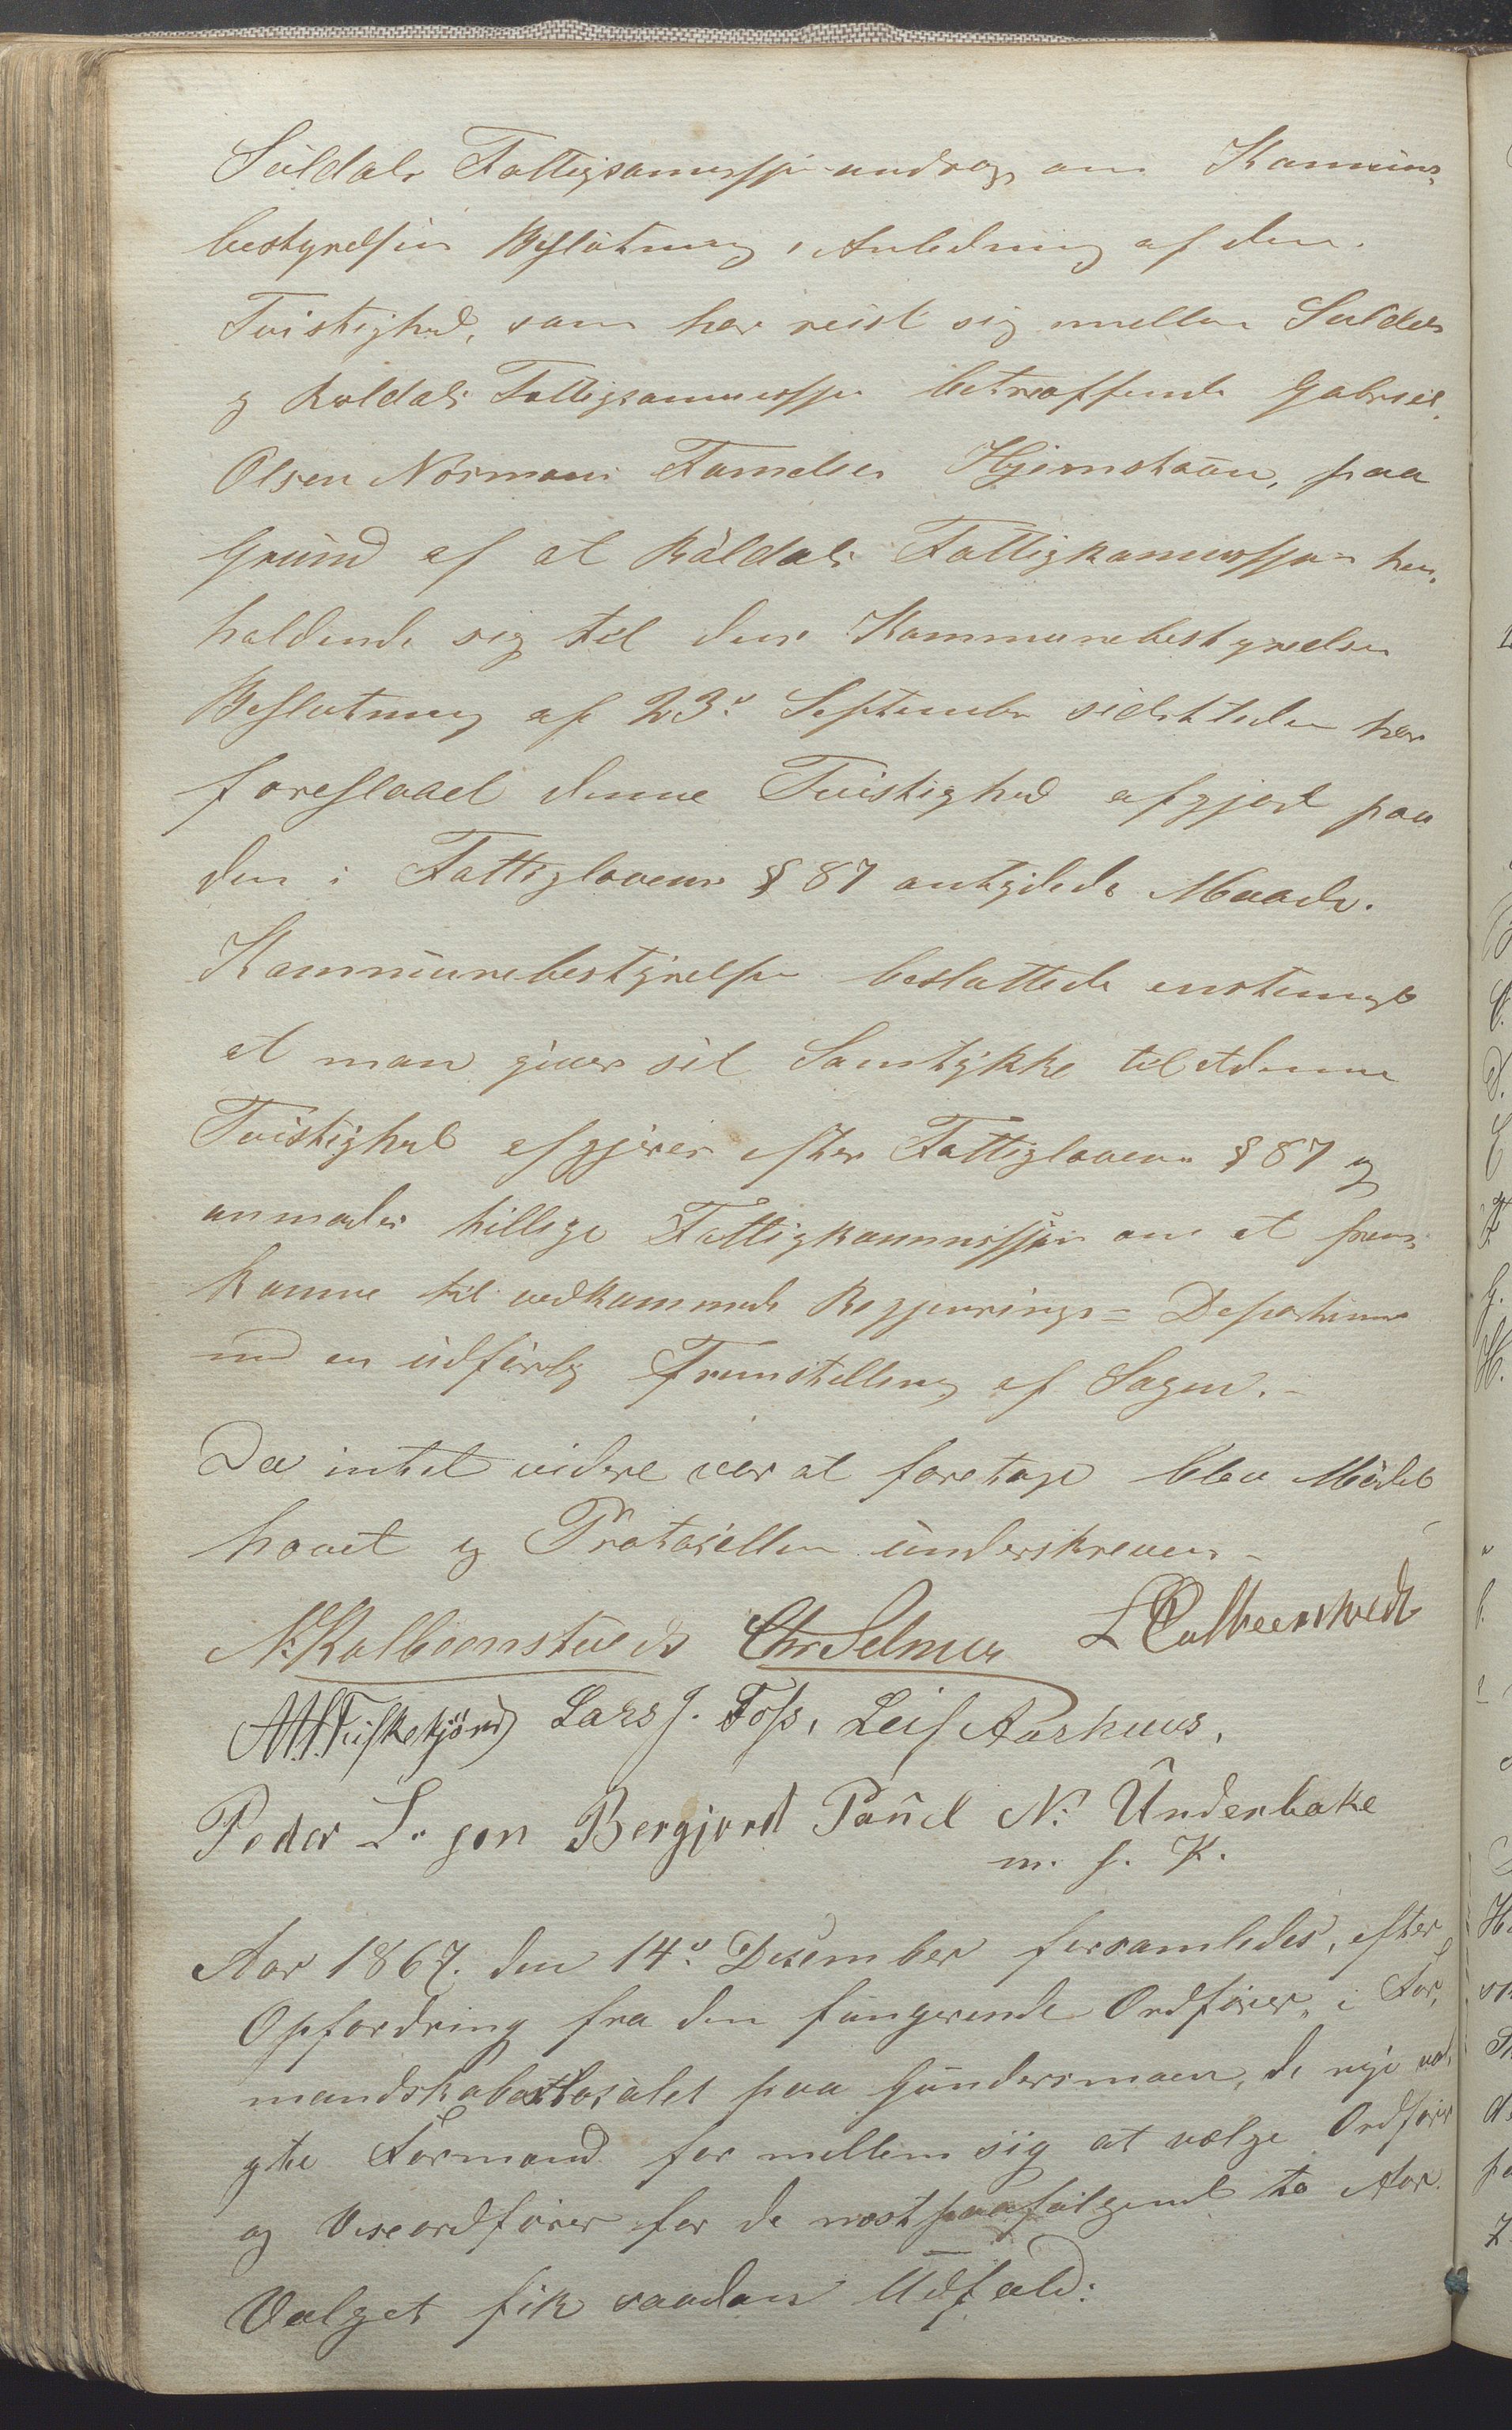 Suldals Fattigcommission androg om Kommune-
bestyrelsens Beslutning i Anledning af den
Tvistighed, som har reist sig mellem Suldals
og Røldals Fattigcommission betræffende Gabriel
Olsen Normans Families Hjemstavn, paa
Grund af at Røldals Fattigkommission hen-
holdende sig til dens Kommunebestyrelses
Beslutning af 23de September sidstleden har
foreslaaet denne Tvistighed afgjort paa
den i Fattiglovens § 87 antydede Maade.
Kommunebestyrelsen besluttede enstemmigt
at man giver sit Samtykke til at denne
Tvistighed afgjøres efter Fattiglovens § 87 og
anmodes tillige Fattigkommissjon om at frem-
komme til vedkommende Regjerings-Departement
med en udførlig Fremstilling af Sagen.-
Da intet videre var at foretage blev Mødet
hævet og Protocollen underskreven-
N. Kolbeenstvedt Chr Selmer L Colbeenstvedt
Fisketjønn Lars J. Foss, Leif Aarhuus,
Peder L. søn Bergjord Poül N. Ünderbake
m. f. P.
Aar 1867. den 14de Desember forsamledes, efter
Opfordring fra den fungerende Ordfører, i For-
mandskabslokalet paa Gundersmoen, de nye val-
gte Formænd for mellem sig at vælge Ordfører
og Viseordfører for de næstpaafølgende to Aar.
Valget fik saadan Udfald: